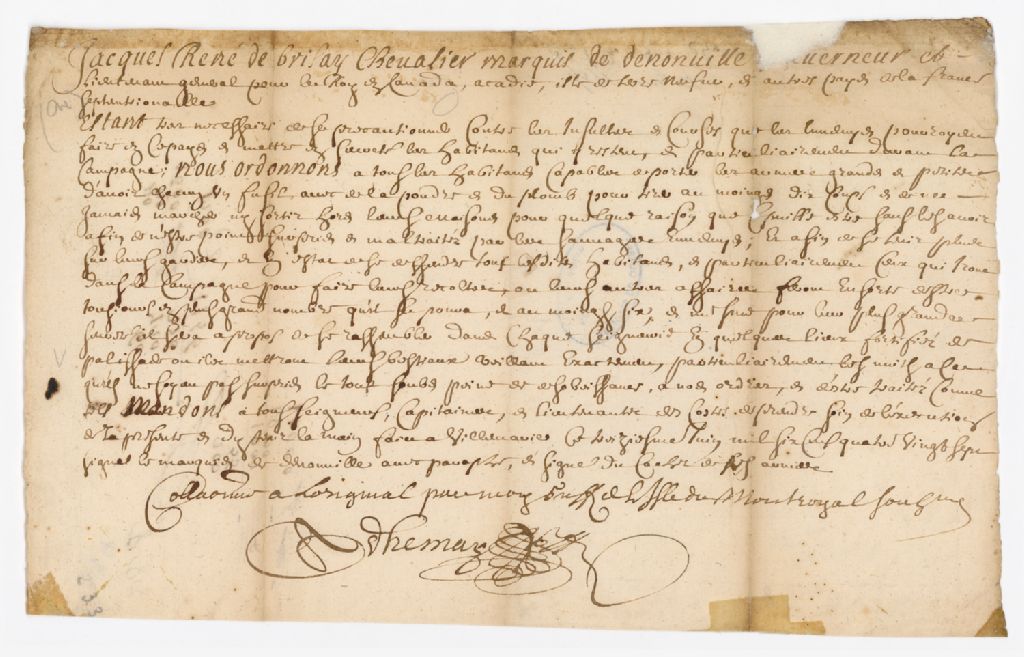 Jacques René de brisay Chevalier marquis de denonville uuerneur et
Lieutenant general pour le Roy en Canada, acadie, isle de terre neufue, et autres pays de la france
septentrionalle
Estant necessaire de se precautionner contre les Insultes et Courses que les Ennemys pourroyent
faire en ce pays et mettre en seureté les habitans qui y resten, et particulliairement durant la
Campagne; nous ordonnons a tous les habitans capables de porter les armes grands et petits
dauoir chacun un fusil auec de la poudre et du plomb pour tirer au moings dix coups et de ne
Jamais marcher ny sortir hors leurs maisons pour quelque raison que ce puisse estre sans les auoir
afin de nestre point surpris et mal traités par les sauuages Ennemys; Et afin de se tenir plus
sur leurs gardes, et en estat de se deffendre tous lesdits habitans, et particulliairement ceux qui Iront
dans la Campagne pour faire leurs recoltes, ou leurs autres affaires feront en sorte destre
tousiours en plus grand nombre quil se pourra, et au moings six, et mesme pour leur plus grande
seureté il sera a propos de se rassembler dans chaque seigneurie en quelques lieux fortifiés de
palissades ou ils mettront leurs bestiaux veillant Exactement, particulliairement les nuits a ce
quils ne soyent pas surpris le tout soubs peine de desobeissance, a nos ordres, et destre traité comme
Mandons a tous seigneurs, Capitaines, et Lieutenants des Costes de prendre soin de lexecution
de la presente et dy tenir la main fait a Villemarie le treziesme Juin mil six cens quatre vingt sept
signé le marquis de denonville auec paraphe, et scellé du Cachet de ses armes
Collationné a Loriginal par moy greffier de lIsle du Montroyal soubsigné
Adhemar greff